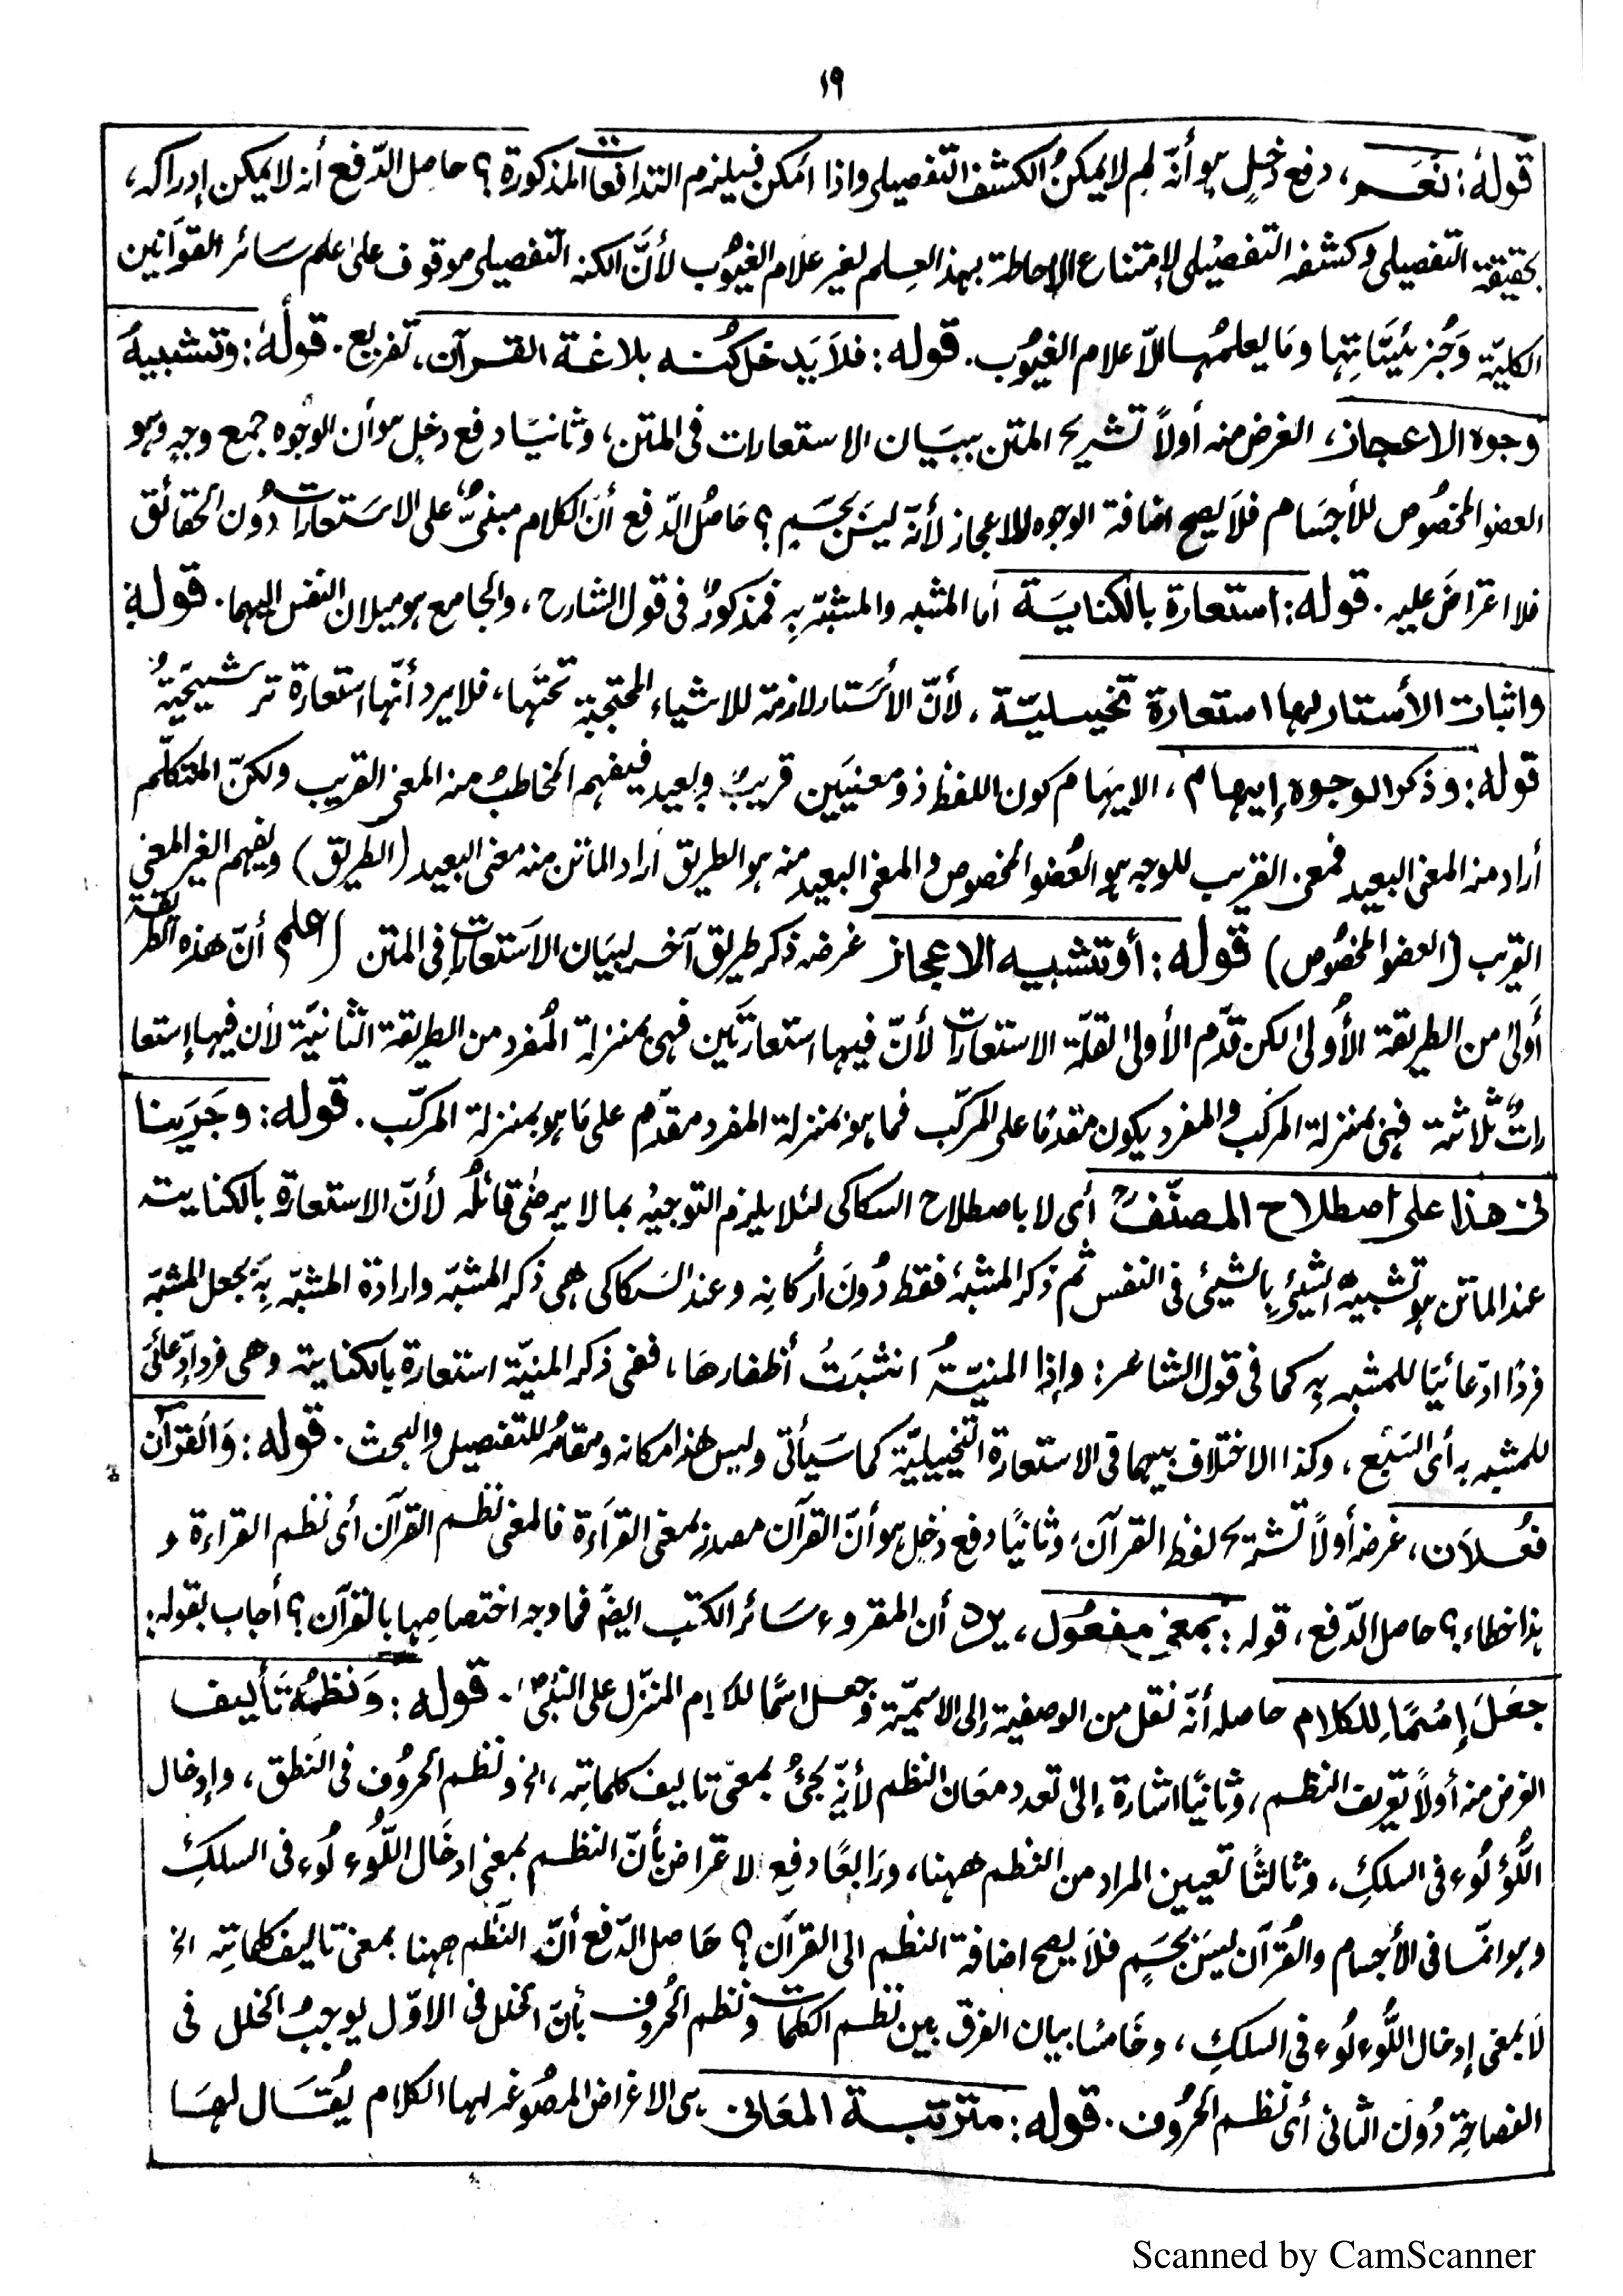 ١٩
قوله: نَعَم، دفع دخلٍ هو أنّه لِم لا يمكنُ الكشف التفصيلي واذا أمكن فيلزم التدافعات المذكورة؟ حاصل الدّفع أنه لا يمكن إدراكه،
بحقيقته التفصيلى وكشفه التفصيلى لإمتناع الإحاطة بهذا العِلم لغير علام الغيُوب لأنَّ الكنه التفصيلى موقوف علىٰ علم سَائر القوَانين
الكليّة وَجُزئيَّاتِها ومَا يعلمُها إلّا علام الغيُوب. قوله: فلاَ يَدخل كُنه بلاغة القرآن، تفريع. قولُهٗ: وتشبيهُ
وجوه الاعجاز، الغرض منه أولاً تشريح المتن ببيَان الاستعارات فى المتن، وثانيًا دفع دخلٍ هو أن الوجُوه جمع وجهٍ وهو
العضو المخصُوص للأجسَام فلاَ يصح اضافة الوجوه للاعجاز لأنّه ليسَ بجَسَمٍ؟ حَاصلُ الدّفع أنّ الكلام مبنىٌّ على الاسَتعارات دُون الحقائق
فلا اعتراضَ عليه. قوله: استعارة بالكنايَة أما المشبه والمشبّه بِهٖ فمذكورٌ فى قول الشارح، والجامع هو ميلان النفس إليهما. قوله:
واثبات الأستار لها استعارة تخييليّة، لأنّ الأسَتار لازمة للاشياء المحتجبة تحتَها، فلا يرد أنّها استعارة ترشيحيّةٌ
قوله: وذكر الوجوه إيهام، الايهَام كون اللفظ ذو معنيَين قريبٌ وبعيد فيفهم المخاطبُ منه المعنى القريب ولكنّ المتكلّم
أراد منه المعنى البعيد فمعنى القريب للوجه هو العُضو المخصُوص والمعنى البعيد منه هو الطريق أراد الماتن منه معنى البعيد (الطريق) ويفهم الغير المعنى
القريب (العضو المخصُوص) قوله: أو تشبيه الاعجاز غرضه ذكر طريق آخر لبيَان الاسَتعارات فى المتن (اعلم أنّ هذه الطريقة
أولىٰ من الطريقة الأولىٰ لكن قدّم الأولىٰ لقلّة الاستعارات لأنّ فيها استعارتَين فهى بمنزلة المُفرد من الطريقة الثانيّة لأن فيها إستعا
راتٌ ثلاثة فهى بمنزلة المركَب والمفرد يكون مقدمًا على المركّب فما هو بمنزلة المفرد مقدّم على مَا هو بمنزلة المركّب. قوله: وجَرَينا
فى هذا على اصطلاح المصنّفؒ أى لا باصطلاح السكاكى لئلا يلزم التوجيهُ بما لا يرضىٰ قائلُه لأنّ الاستعارة بالكناية
عند الماتن هو تشبيهُ الشيئِ بالشيئ فى النفس ثم ذكر المشبّهُ فقط دُونَ أركانِه وعند السَكاكى هى ذكر المشبّه وارادة المشبّه بِهٖ بجعل المشبّه
فردًا ادّعائيًا للمشبه بِهٖ كما فى قول الشاعر: وإذا المنيّةُ انشبَتُ أظفارهَا، ففى ذكر المنيّة استعارة بالكناية وهى فرد إدّعائى
للمشبه به أى السَبُع، وكذا الاختلاف بينهما فى الاستعارة التخييليّة كما سَيأتى وليس هذا مكانه ومقامُه للتفصيل والبحث. قوله: وَالقرآن
فعُلاَن، غرضه أولاً تشريح لفظ القرآن، وثانيًا دفع دخلٍ هو أنّ القرآن مصدر بمعنى القرآءة فالمعنى نظم القرآن أى نظم القراءة و
هذا خطاء؟ حاصل الدّفع، قوله: بمعنى مفعُول، يرد أن المقروء سَائر الكتب ايضًا فما وجه اختصاصِها بالقرآن؟ أجاب بقوله:
جعَلَ إِسْمًا لِلكلام حاصله أنّه نقل من الوصفية إلى الاسميّة وجعل اسمًا للكلام المنزّل على النّبيؐ. قوله: وَنظمُهٗ تَأليف
الغرض منه أولاً تعريف النظم، وثانيًا اشارة إلىٰ تعدد معَان النظم لأنّه يجئُ بمعنى تاليف كلماتِه، الخ ونظم الحروُف فى النَطق، وإدخال
اللُّؤلُوء فى السلكِ، وثالثًا تعيين المراد من النظم ههنا، ورَابعًا دفع الاعتراض بأنّ النظم بمعنى ادخَال اللُّوءلُوء فى السلكِ
وهو انمّا فى الأجسام والقُرآن ليسَ بجَسَمٍ فلاَ يصح اضافة النظم الى القرآن؟ حَاصل الدّفع أنّ النَظم ههنا بمعنى تاليف كلماتِه الخ
لاَ بمعنى إدخال اللُّوءلُوء فى السلكِ، وخَامسًا بيان الفرق بين نظم الكلمات ونظم الحُروف بأنّ الخلل فى الاوّل يوجبُ الخلل فى
الفصاحة دُونَ الثانى أى نظم الحُروُف. قوله: مترتبة المعَانى هى الاغراض المصُوغ لها الكلام يُقسَال لهَا
Scanned by CamScanner